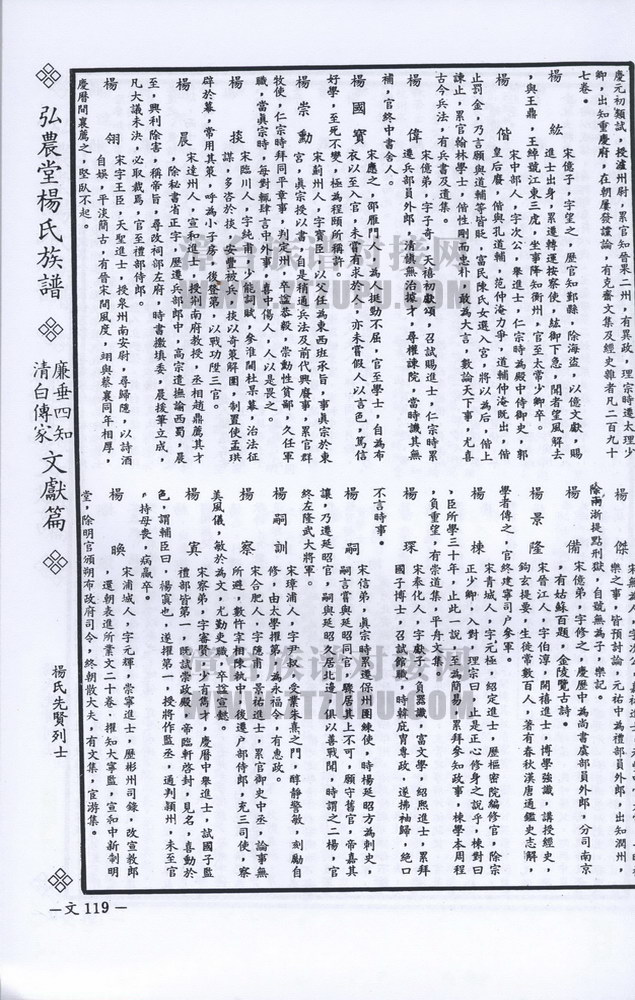 慶元初類試，授瀘州尉，累官知晉果二州，有異政，理宗時遷太理少
卿，出知重慶府，在朝屢發讜論，有克齋文集及經史雜者凡二百九十
七卷。
楊紘　宋億子，字望之，歷官知鄞縣，除海盜，以億文獻，賜
進士出身，累遷轉運按察使，紘御下急，聞者望風解去
，與王鼎，王綽號江東三虎，坐事降知衡州，官至太常少卿卒。
楊偕　宋中部人，字次公，舉進士，仁宗時為殿中侍御史，郭
皇后廢，偕與孔道輔，范仲淹力爭，道輔仲淹既出，偕
止罰金，乃言願與道輔等皆貶，富民陳氏女選入宮，將以為后，偕上
諫止，累官翰林學士，偕性剛而忠朴，敢為大言，數論天下事，尤喜
古今兵法，有兵書及遺集。
楊偉　宋億弟，字子奇，天禧初獻頌，召試賜進士，仁宗時累
遷兵部員外郎，清慎無治據才，尋權諫院，當時譏其無
補，官終中書舍人。
楊國寶　宋應之，邵雁門人，為人挺勁不屈，官至學士，自為布
衣以至入官，未嘗有求於人，亦未嘗假人以言色，篤信
好學，至死不變，極為程頤所稱許。
楊崇勳　宋薊州人，字寶臣，以父任為東西班承旨，事眞宗於東
宮，眞宗授以書，自是稍通兵法及前代興廢事，累官群
牧使，仁宗時拜同平章事，判定州，卒諡恭毅，崇勳性貪鄙，久任軍
職，當眞宗時，每對輒肆言中外事，喜中傷人，人以是畏之。
楊掞　宋臨川人，字純甫，少能詞賦，參淮閫杜杲幕，治法征
謀，多咨於掞，安豐被兵，掞以奇策解圍，制置使孟珙
辟於幕，常用其策，呼為小子房，後登第，以戰功陞三官。
楊晨　宋達州人，宣和進士，授淅南府教授，丞相趙鼎薦其才
，除秘書省正字，歷遷兵部郎中，高宗遣撫諭西蜀，晨
至，興利除害，稱帝旨，尋改祠部左府，時書撤填委，晨援筆立成，
凡大議未決，必取裁焉，官至禮部侍郎。
楊翎　宋字王臣，天聖進士，授泉州南安尉，尋歸隱，以詩酒
自娛，平淡簡古，有晉宋閒風度，翊與蔡襄同年相厚，
慶曆間襄薦之，堅臥不起。
樂之事，皆預討論，元祐中為禮部員外郎，出知潤州，
除兩淅提點刑獄，自號無為子，樂記。
楊備　宋億弟，字修之，慶歷中為尚書虞部員外郎，分司南京
，有姑蘇百題，金陵覽古詩。
楊景隆　宋晉江人，字伯淳，開禧進士，博學強識，講授經史，
鉤玄提要，生徒常數百人，著有春秋漢唐通鑑史志解，
學者傳之，官終建寧司户參軍。
楊棟　宋青城人，字元極，紹定進士，歷樞密院編修官，除宗
正少卿，入對，理宗曰，止是正心修身之說乎，棟對曰
，臣所學三十年，止此一説，至為簡易，累拜參知政事，棟學本周程
，負重望，有崇道集，平舟文集。
楊琛　宋奉化人，字獻子，負器識，富文學，紹熙進士，累拜
國子博士，召試館職，時韓庇胄專政，遂拂袖歸，絕口
不言時事。
楊嗣　宋信弟，眞宗時累遷保州團練使，時楊延昭方為刺史，
嗣言嘗與延昭同官，驟居其上不可，願守舊官，帝嘉其
讓，乃遷延昭官，嗣與延昭久居北邊，俱以善戰聞，時謂之二楊，官
終左隆武大將軍。
楊嗣訓　宋漳浦人，字　叔，受業朱熹之門，醇靜警敏，刻勵自
修，由太學擢第，為永福令，有惠政。
楊察　宋合肥人，字隱甫，景祐進士，累官御史中丞，論事無
所避，數忤宰相陳執中，後遷户部侍郎，充三司使，察
美風儀，敏於為文，尤勤吏職，卒諡宣懿。
楊寘　宋察弟，字審賢，少有雋才，慶曆中舉進士，試國子監
禮部皆第一，既試崇政殿，帝臨軒啓封，見名，喜動於
色，謂輔臣曰，楊寘也，遂擢第一，授將作監丞，通判潁州，未至官
，持母喪，病羸卒。
楊晚　宋浦城人，字元輝，崇寧進士，歷彬州司錄，改宣教郎
，還朝表進所業文二十卷，擢知大寧監，宣和中新制明
堂，除明官頒朔布政府司令，終朝散大夫，有文集，官游集。
弘農堂楊氏族譜
廉垂四知
清白傳家
文獻篇
楊氏先賢列士
－文119－
南昌族谱对接网
WWW.JTZUPU.COM